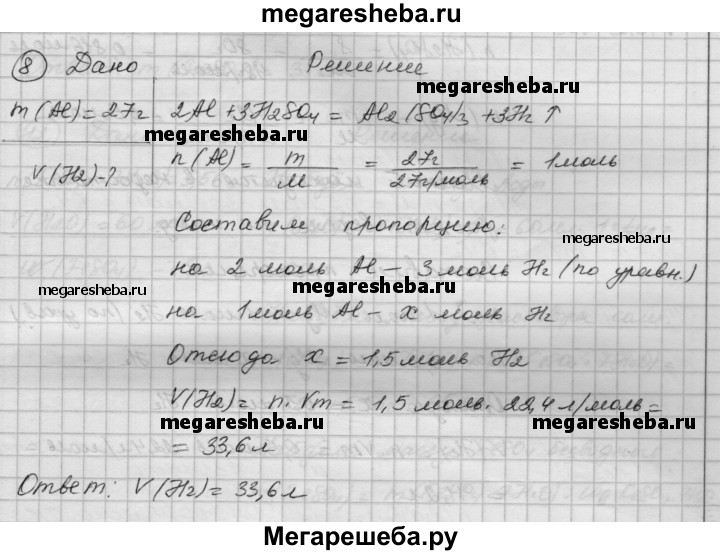 megaresheba.ru
8 Дано Решение
m(Al)=27г 2Al+3H2SO4= Al2(SO4)3+3H2↑
megaresheba.ru megaresheba.ru
V(H2)-? n(Al)= m/M = 27г/27г/моль = 1моль
Составим пропорцию:
megaresheba.ru
на 2 моль Al – 3 моль H2 (по уравн.)
megaresheba.ru
на 1моль Al – x моль H2
Отсюда x = 1,5моль H2
V(H2)= n·Vm = 1,5моль·22,4л/моль=
megaresheba.ru megaresheba.ru
= 33,6л
Ответ: V(H2)=33,6л
Мегарешеба.ру